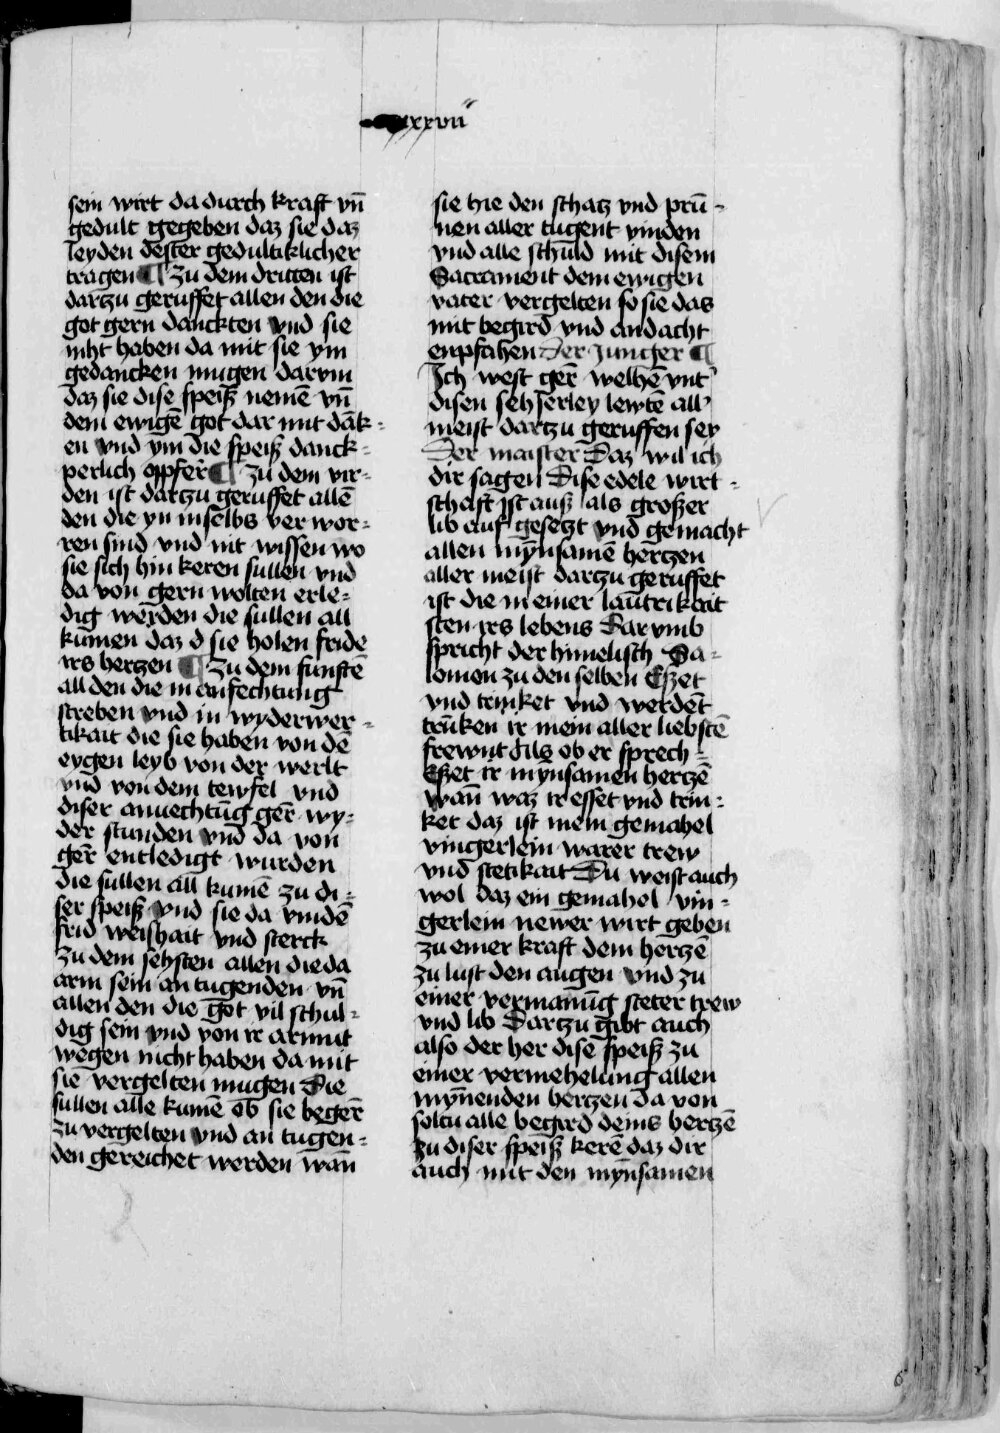 xxvii
sein wirt da durch kraft vn̄
gedult gegeben daz sie daz
leyden dester gedultiklicher
tragen ¶ zu dem dritten ist
dartzu geruffet allen den die
got gern danckten vnd sie
niht haben da mit sie ym
gedancken mugen darvm
daz sie dise speiß nemē vn̄
dem ewigē got dar mit dāk-
en vnd ym die speiß danck-
perlich oppfer̄ ¶ zu dem vir-
den ist dartzu geruffet allē
den die yn inselbs ver wor-
ren sind vnd nit wissen wo
sie sich hin keren sullen vnd
da von gern wolten erle-
dig werden die sullen all
kumen daz d sie holen fride
irs hertzen ¶ zu dem funftē
all den die in anfechtung
streben vnd in wyderwer-
tikait die sie haben von dē
eygen leyb von der werlt
vnd von dem tewfel vnd
diser anuechtūg ger̄ wy-
der stunden vnd da von
ger̄ entledigt wurden
die sullen all kumē zu di-
ser speiß vnd sie da vindē
frid weishait vnd sterck
zu dem sehsten allen die da
arm sein an tugenden vn̄
allen den die got vil schul-
dig sein vnd von ir armut
wegen nicht haben da mit
sie vergelten mugen Die
sullen alle kumē ob sie beger̄
zu vergelten vnd an tugen-
den gereichet werden wān
sie hie den schatz vnd prū-
nen aller tugent vinden
vnd alle schuld mit disem
Sacrament dem ewigen
vater vergelten so sie das
mit begird vnd andacht
enpfahen Der Junger ¶
Ich west ger̄ welhē vnt'
disen sehserley lewtē all'
meist dartzu geruffen sey
Der maister Daz wil ich
dir sagen Dise edele wirt-
schaft ist auß als großer
lib auf gesetzt vnd gemacht
allen mynsamē hertzen
aller meist dartzu geruffet
ist die in einer lautrikait
sten irs lebens Dar vmb
spricht der himelisch Sa-
lomon zu den selben Eßet
vnd trinket vnd werdēt
trūken ir mein aller liebstē
frewnt Als ob er sprech-
Eßet ir mynsamen hertzē
wān waz ir esset vnd trin-
ket daz ist mein gemahel
vingerlein warer trew
vnd stetikait Du weist auch
wol daz ein gemahel vin-
gerlein newer wirt geben
zu einer kraft dem hertzē
zu lust den augen vnd zu
einer vermanūg steter trew
vnd lib Dartzu gibt auch
also der her dise speiß zu
einer vermehelung allen
mynnenden hertzen da von
soltu alle begird deins hertzē
zu diser speiß kerē daz dir
auch mit den mynsamen